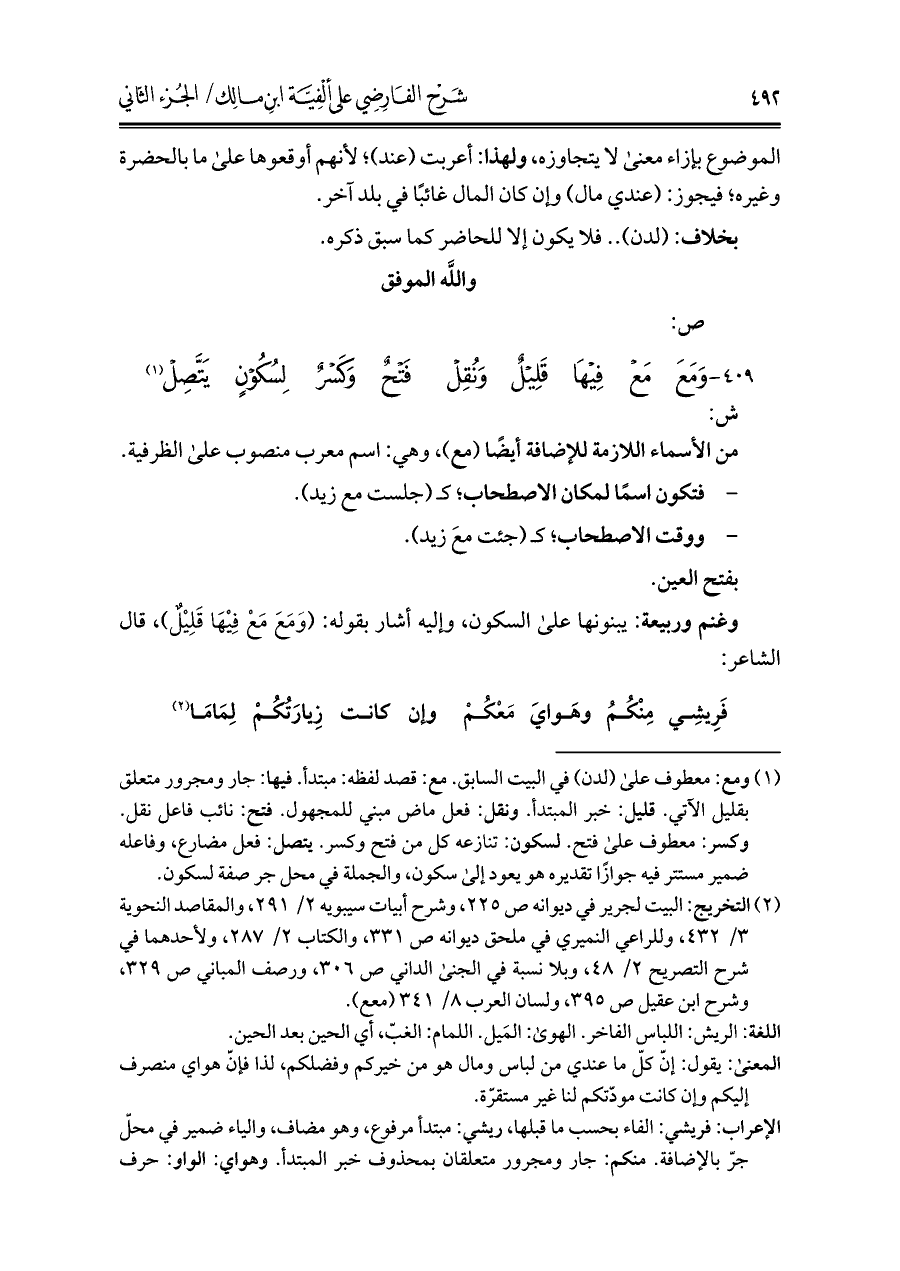 ٤٩٢ شَرْح الفَارِضِي عَلى أَلْفِيَّة ابنِ مَالِك/ الجُزء الثاني
الموضوع بإزاء معنىٰ لا يتجاوزه، ولهذا: أعربت (عند)؛ لأنهم أوقعوها علىٰ ما بالحضرة
وغيره؛ فيجوز: (عندي مال) وإن كان المال غائبًا في بلد آخر.
بخلاف: (لدن).. فلا يكون إلا للحاضر كما سبق ذكره.
واللَّه الموفق
ص:
٤٠٩-وَمَعَ مَعْ فِيْهَا قَلِيْلٌ وَنُقِلْ فَتْحٌ وَكَسْرٌ لِسُكُوْنٍ يَتَّصِلْ(١)
ش:
من الأسماء اللازمة للإضافة أيضًا (مع)، وهي: اسم معرب منصوب علىٰ الظرفية.
– فتكون اسمًا لمكان الاصطحاب؛ كـ (جلست مع زيد).
– ووقت الاصطحاب؛ كـ (جئت معَ زيد).
بفتح العين.
وغنم وربيعة: يبنونها علىٰ السكون، وإليه أشار بقوله: (وَمَعَ مَعْ فِيْهَا قَلِيْلٌ)، قال
الشاعر:
فَرِيشِـي مِنْكُـمُ وهَـوايَ مَعْكُـمْ وإن كانـت زِيارَتُكُـمْ لِمَامَـا(٢)
(١) ومع: معطوف علىٰ (لدن) في البيت السابق. مع: قصد لفظه: مبتدأ. فيها: جار ومجرور متعلق
بقليل الآتي. قليل: خبر المبتدأ. ونقل: فعل ماض مبني للمجهول. فتح: نائب فاعل نقل.
وكسر: معطوف علىٰ فتح. لسكون: تنازعه كل من فتح وكسر. يتصل: فعل مضارع، وفاعله
ضمير مستتر فيه جوازًا تقديره هو يعود إلىٰ سكون، والجملة في محل جر صفة لسكون.
(٢) التخريج: البيت لجرير في ديوانه ص ٢٢٥، وشرح أبيات سيبويه ٢/ ٢٩١، والمقاصد النحوية
٣/ ٤٣٢، وللراعي النميري في ملحق ديوانه ص ٣٣١، والكتاب ٢/ ٢٨٧، ولأحدهما في
شرح التصريح ٢/ ٤٨، وبلا نسبة في الجنىٰ الداني ص ٣٠٦، ورصف المباني ص ٣٢٩،
وشرح ابن عقيل ص ٣٩٥، ولسان العرب ٨/ ٣٤١ (معع).
اللغة: الريش: اللباس الفاخر. الهوىٰ: المَيل. اللمام: الغبّ، أي الحين بعد الحين.
المعنىٰ: يقول: إنّ كلّ ما عندي من لباس ومال هو من خيركم وفضلكم، لذا فإنّ هواي منصرف
إليكم وإن كانت مودّتكم لنا غير مستقرّة.
الإعراب: فريشي: الفاء بحسب ما قبلها، ريشي: مبتدأ مرفوع، وهو مضاف، والياء ضمير في محلّ
جرّ بالإضافة. منكم: جار ومجرور متعلقان بمحذوف خبر المبتدأ. وهواي: الواو: حرف